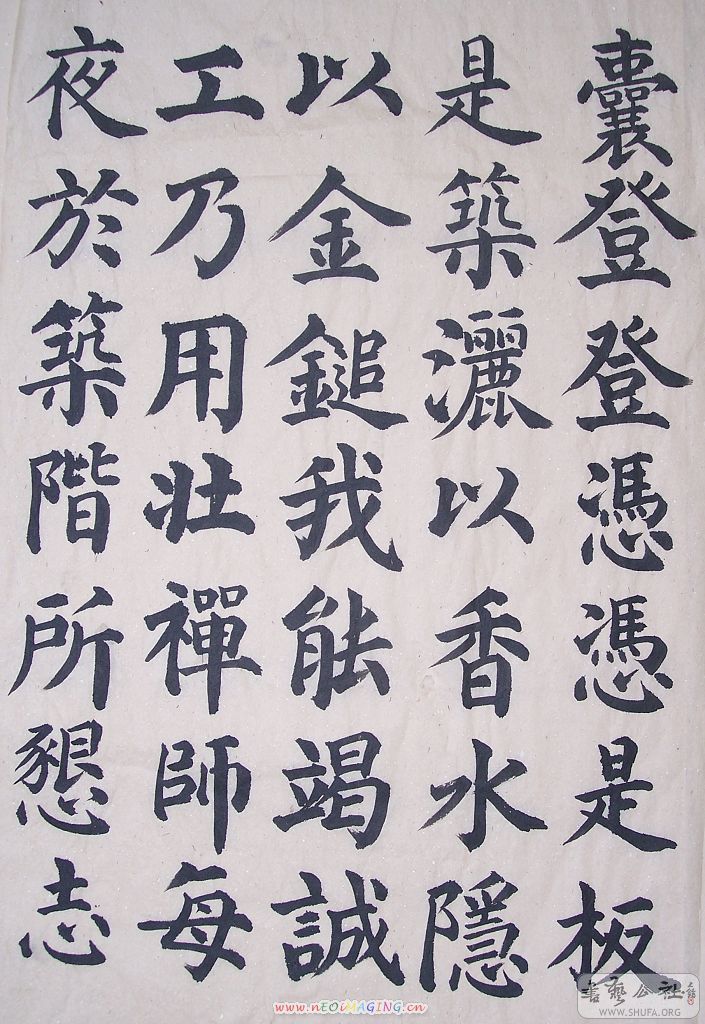 囊登登憑憑是板
是築灑以香水隱
以金鎚我能竭誠
工乃用壯禪師每
夜於築階所懇志
書藝公社
WWW.SHUFA.ORG
www.nEOiMAGING.cn